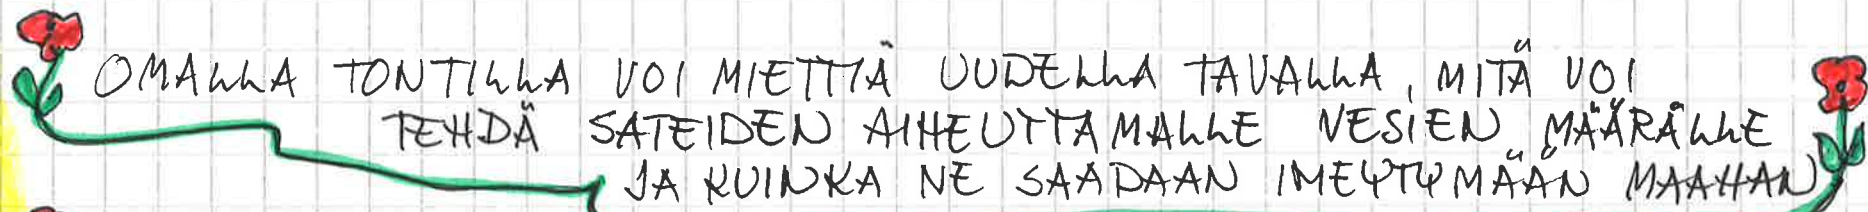 OMALLA TONTILLA VOI MIETTIÄ UUDELLA TAVALLA, MITÄ VOI
TEHDÄ SATEIDEN AIHEUTTAMALLE VESIEN MÄÄRÄLLE
JA KUINKA NE SAADAAN IMEYTYMÄÄN MAAHAN